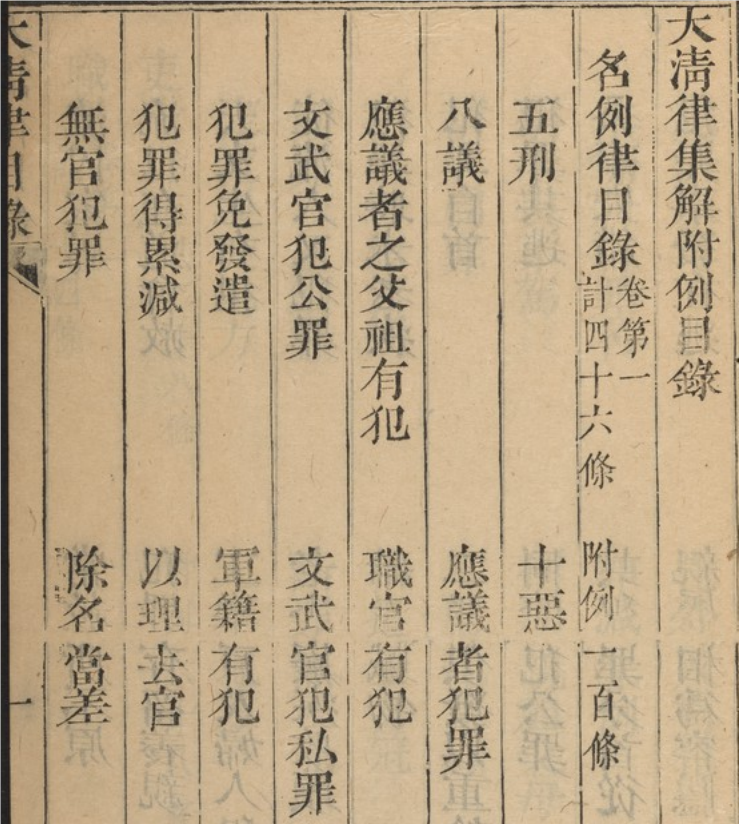 大清律集解附例目錄
名例律目錄 卷第一 計四十六條 附例一百條
五刑 十惡
八議 應議者犯罪
應議者之父祖有犯 職官有犯
文武官犯公罪 文武官犯私罪
犯罪免發遣 軍籍有犯
犯罪得累減 以理去官
無官犯罪 除名當差
大清律目錄 一